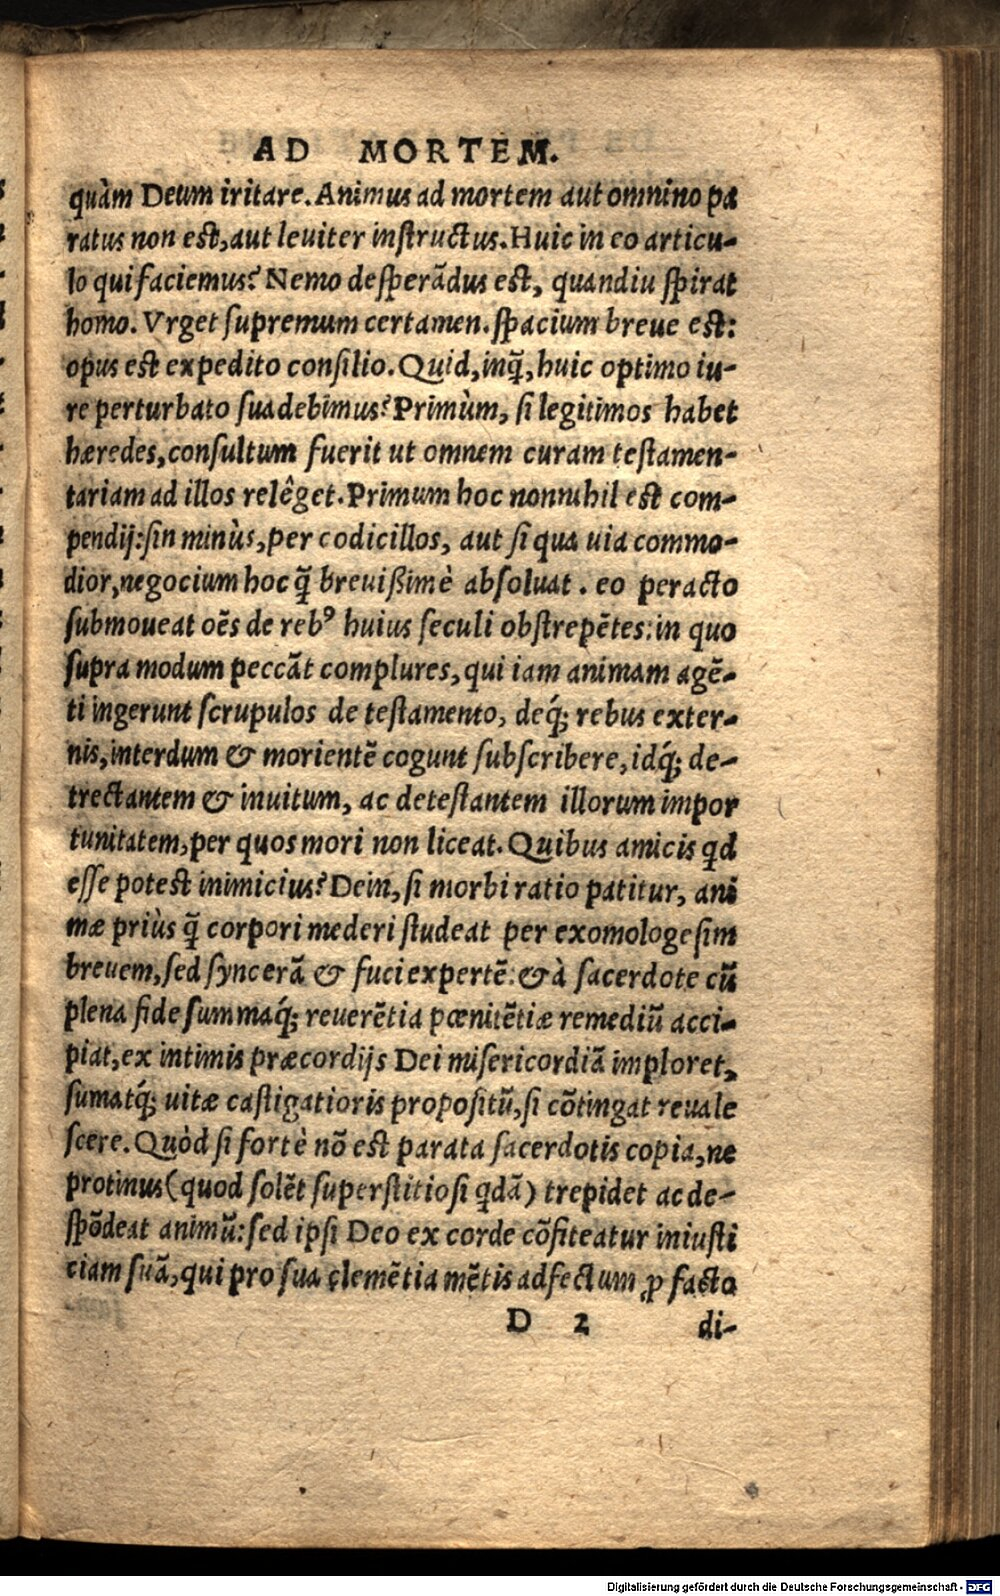 AD MORTEM.
quàm Deum iritare. Animus ad mortem aut omnino pa
ratus non est, aut leuiter instructus. Huic in eo articu-
lo qui faciemus? Nemo desperādus est, quandiu spirat
homo. Vrget supremum certamen. spacium breue est:
opus est expedito consilio. Quid, inq̃, huic optimo iu-
re perturbato suadebimus? Primùm, si legitimos habet
hæredes, consultum fuerit ut omnem curam testamen-
tariam ad illos relêget. Primum hoc nonnihil est com-
pendij: sin minùs, per codicillos, aut si qua uia commo-
dior, negocium hoc q̃ breuißimè absoluat. eo peracto
submoueat oẽs de rebꝰ huius seculi obstrepẽtes: in quo
supra modum peccãt complures, qui iam animam agẽ-
ti ingerunt scrupulos de testamento, deq́; rebus exter-
nis, interdum & morientẽ cogunt subscribere, idq́; de-
trectantem & inuitum, ac detestantem illorum impor
tunitatem, per quos mori non liceat. Quibus amicis qd
esse potest inimicius? Dein, si morbi ratio patitur, ani
mæ priùs q̃ corpori mederi studeat per exomologesim
breuem, sed syncerã & fuci expertẽ: & à sacerdote cũ
plena fide summaq́; reuerẽtia pœnitẽtiæ remediũ acci-
piat, ex intimis præcordijs Dei misericordiã imploret,
sumatq́; uitæ castigatioris propositũ, si cõtingat reuale
scere. Quòd si fortè nõ est parata sacerdotis copia, ne
protinus (quod solẽt superstitiosi qdã) trepidet ac de-
spõdeat animũ: sed ipsi Deo ex corde cõfiteatur iniusti
ciam suã, qui pro sua clemẽtia mẽtis adfectum ꝓ facto
D 2 di-
Digitalisierung gefördert durch die Deutsche Forschungsgemeinschaft - DFG